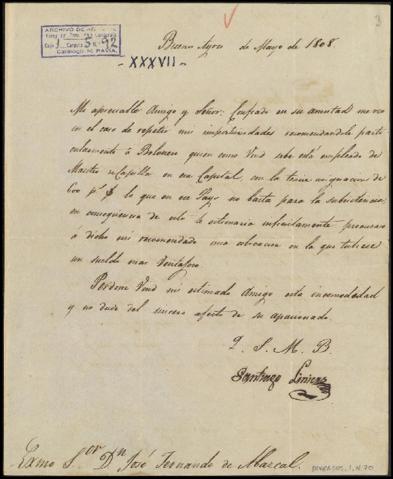 3
ARCHIVO DE
Caja 1 Carpeta 5 N. 12
Catálogo M. PAVIA.
Buenos Ayres de Mayo de 1808.
-XXXVII-
Mi apreciable Amigo y Señor: Confiado en su amistad me veo
en el caso de repetir mis importunidades recomendandole parti
cularmente á Bolonesi quien como Vmd sabe está empleado de
Maestro Capilla en esa Capital, con la tenue asignacion de
600 p.s lo que en ese Pays no basta para la subsistencia:
en consequencia de esto le estimaria infinitamente procurase
á dicho mi recomendado una colocacion en la que tubiese
un sueldo mas ventajoso.
Perdone Vmd mi estimado Amigo esta incomodidad
y no dude del sincero afecto de su apasionado.
Q. S. M. B.
Santiago Liniers
Exmo S.or D.n José Fernando de Abascal.
DIVERSOS, 1, N. 70